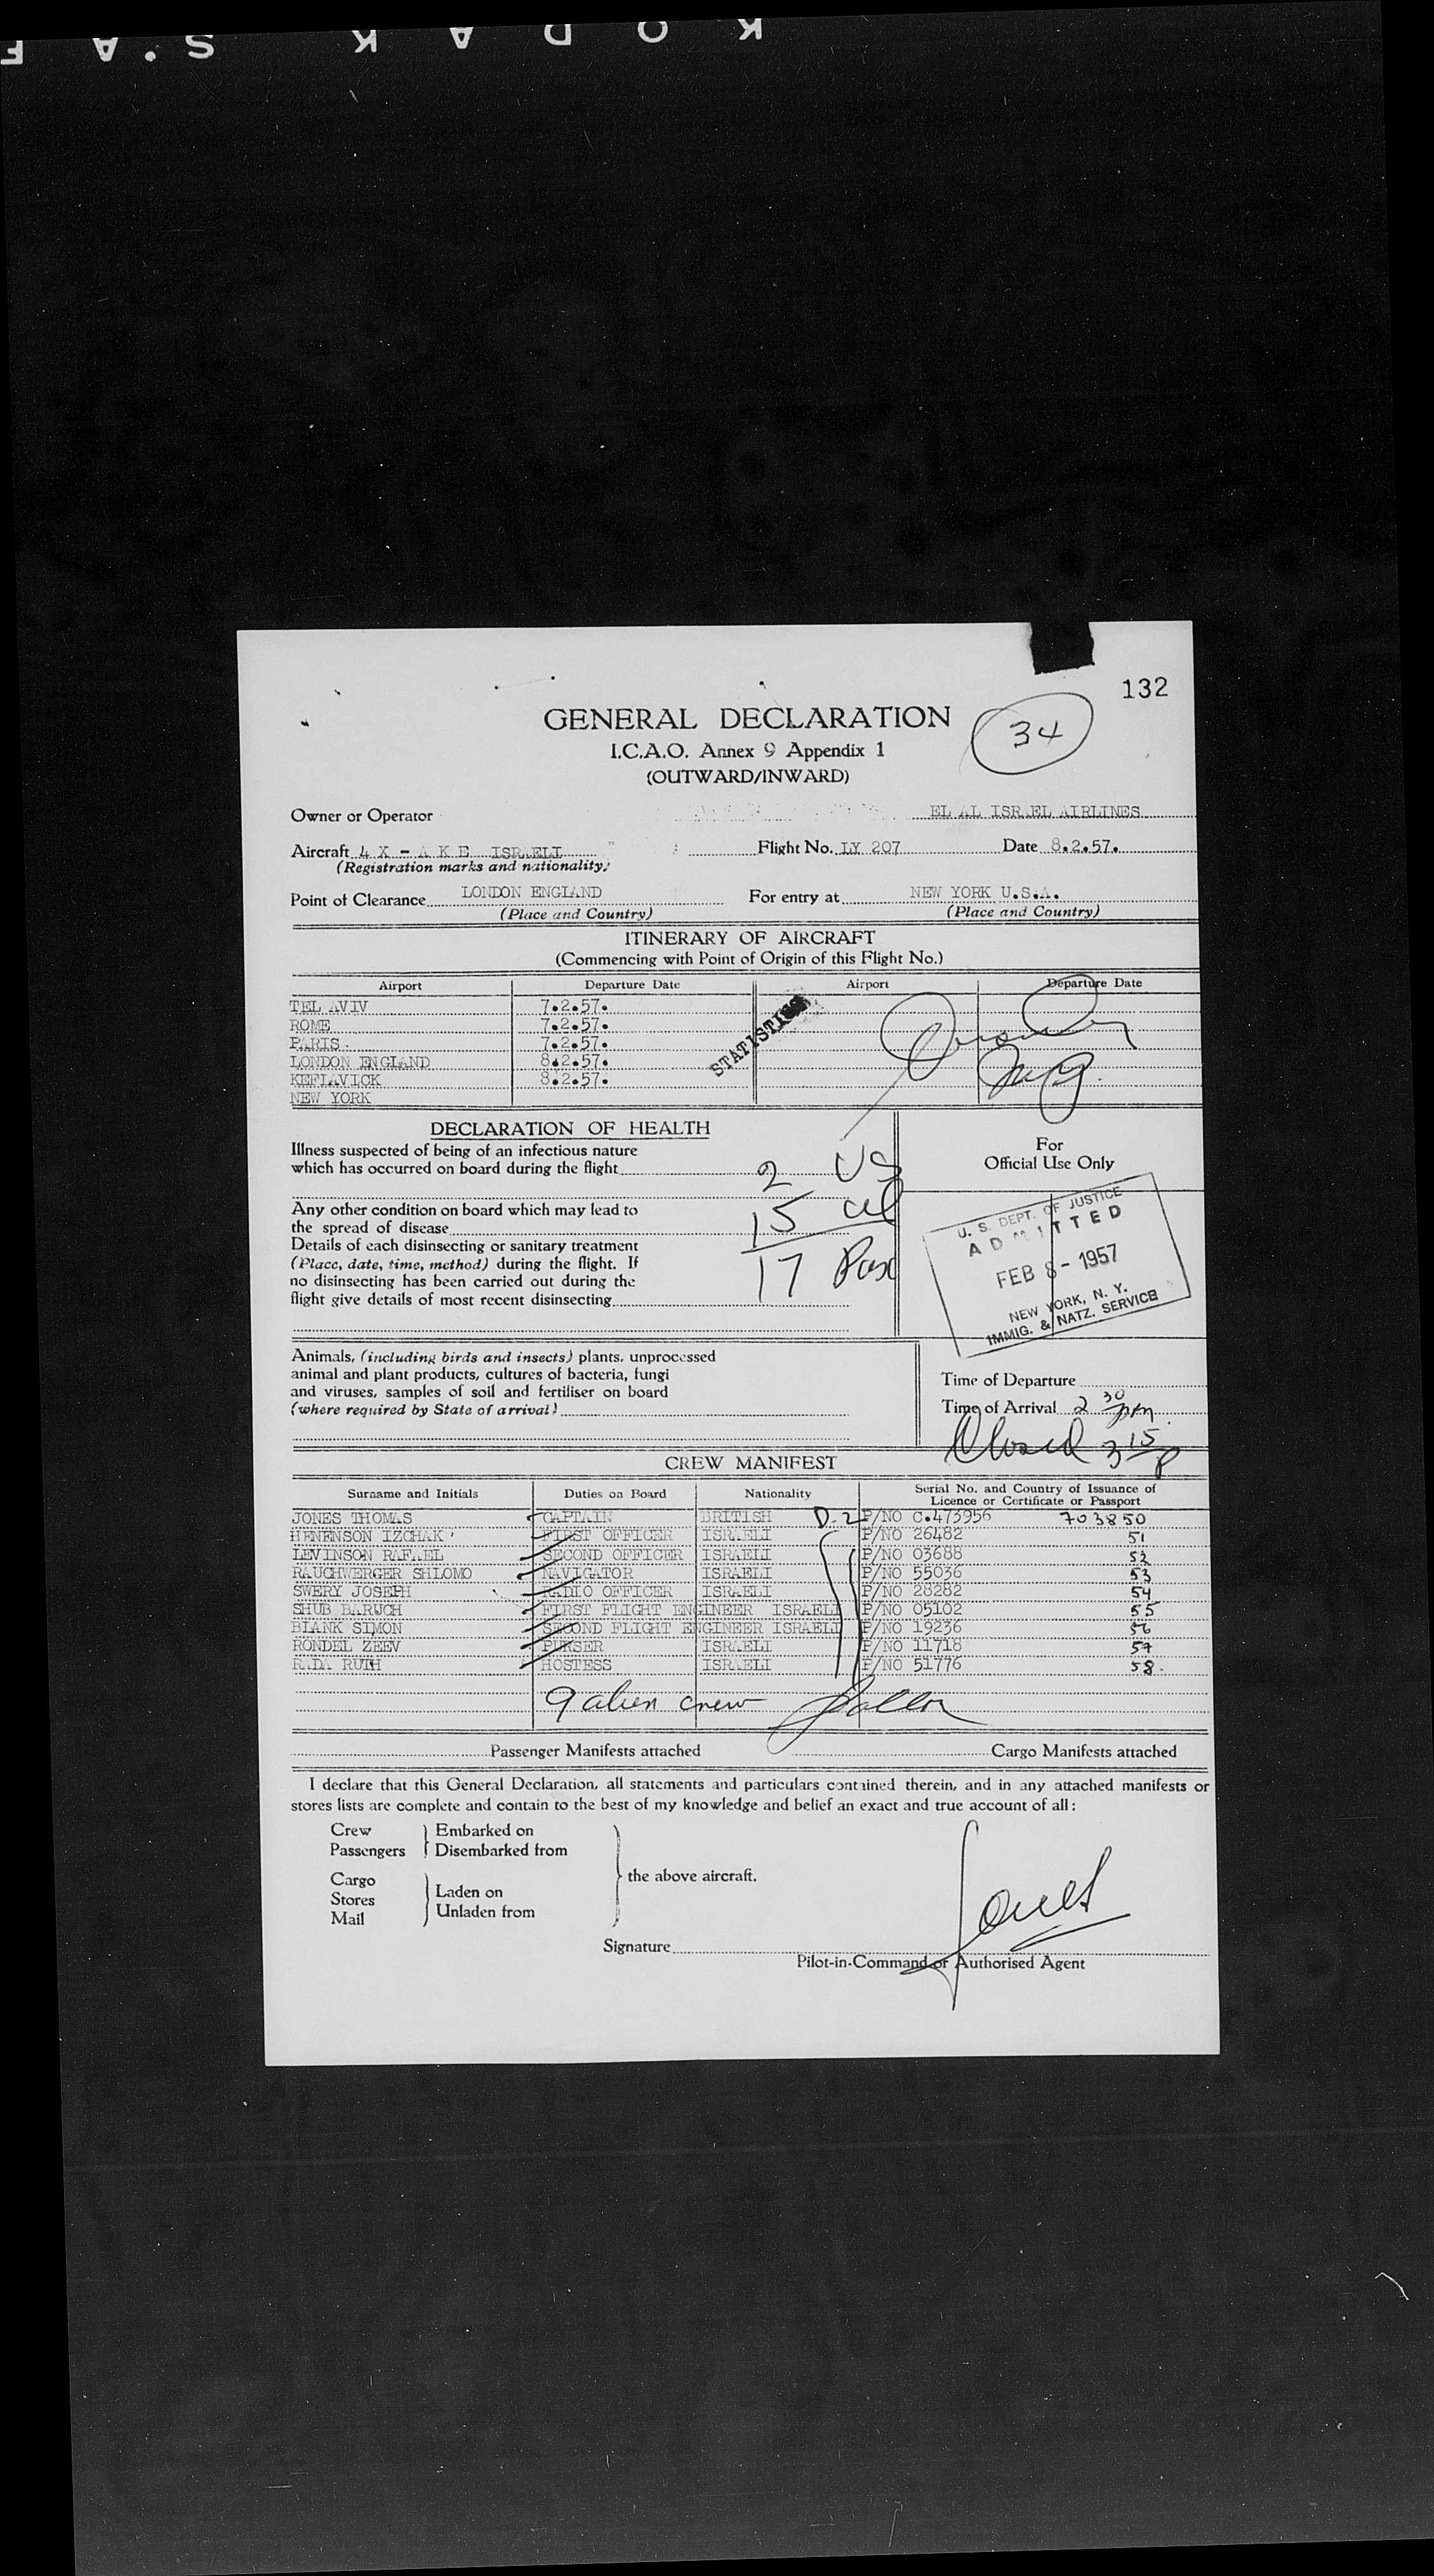 KODAK S.A F
132
GENERAL DECLARATION
34
I.C.A.O. Annex 9 Appendix 1
(OUTWARD/INWARD)
Owner or Operator EL AL ISRAEL AIRLINES
Aircraft 4 X - A K E ISRAELI Flight No. LY 207 Date 8.2.57.
(Registration marks and nationality)
Point of Clearance LONDON ENGLAND For entry at NEW YORK U.S.A.
(Place and Country) (Place and Country)
ITINERARY OF AIRCRAFT
(Commencing with Point of Origin of this Flight No.)
Airport Departure Date Airport Departure Date
TEL AVIV 7.2.57.
ROME 7.2.57.
PARIS 7.2.57.
LONDON ENGLAND 8.2.57.
KEFLAVICK 8.2.57.
NEW YORK
STATISTICS
DECLARATION OF HEALTH
Illness suspected of being of an infectious nature
which has occurred on board during the flight
2 US
Any other condition on board which may lead to
the spread of disease
15 al
Details of each disinsecting or sanitary treatment
(Place, date, time, method) during the flight. If
no disinsecting has been carried out during the
flight give details of most recent disinsecting
17 Pax
For
Official Use Only
U. S. DEPT. OF JUSTICE
ADMITTED
FEB 8 - 1957
NEW YORK, N. Y.
IMMIG. & NATZ. SERVICE
Animals, (including birds and insects) plants, unprocessed
animal and plant products, cultures of bacteria, fungi
and viruses, samples of soil and fertiliser on board
(where required by State of arrival)
Time of Departure
Time of Arrival 2 30 pm
Closed 3 15 p
CREW MANIFEST
Surname and Initials Duties on Board Nationality Serial No. and Country of Issuance of Licence or Certificate or Passport
JONES THOMAS CAPTAIN BRITISH D-2 P/NO C.473956 703850
HENENSON IZCHAK FIRST OFFICER ISRAELI P/NO 26482 51
LEVINSON RAFAEL SECOND OFFICER ISRAELI P/NO 03688 52
RAUCHWERGER SHLOMO NAVIGATOR ISRAELI P/NO 55036 53
SWERY JOSEPH RADIO OFFICER ISRAELI P/NO 28282 54
SHUB BARUCH FIRST FLIGHT ENGINEER ISRAELI P/NO 05102 55
BLANK SIMON SECOND FLIGHT ENGINEER ISRAELI P/NO 19236 56
RONDEL ZEEV PURSER ISRAELI P/NO 11718 57
RADA RUTH HOSTESS ISRAELI P/NO 51776 58.
9 alien crew
Passenger Manifests attached Cargo Manifests attached
I declare that this General Declaration, all statements and particulars contained therein, and in any attached manifests or
stores lists are complete and contain to the best of my knowledge and belief an exact and true account of all:
Crew Embarked on
Passengers Disembarked from
the above aircraft.
Cargo
Stores Laden on
Mail Unladen from
Jones
Signature
Pilot-in-Command or Authorised Agent